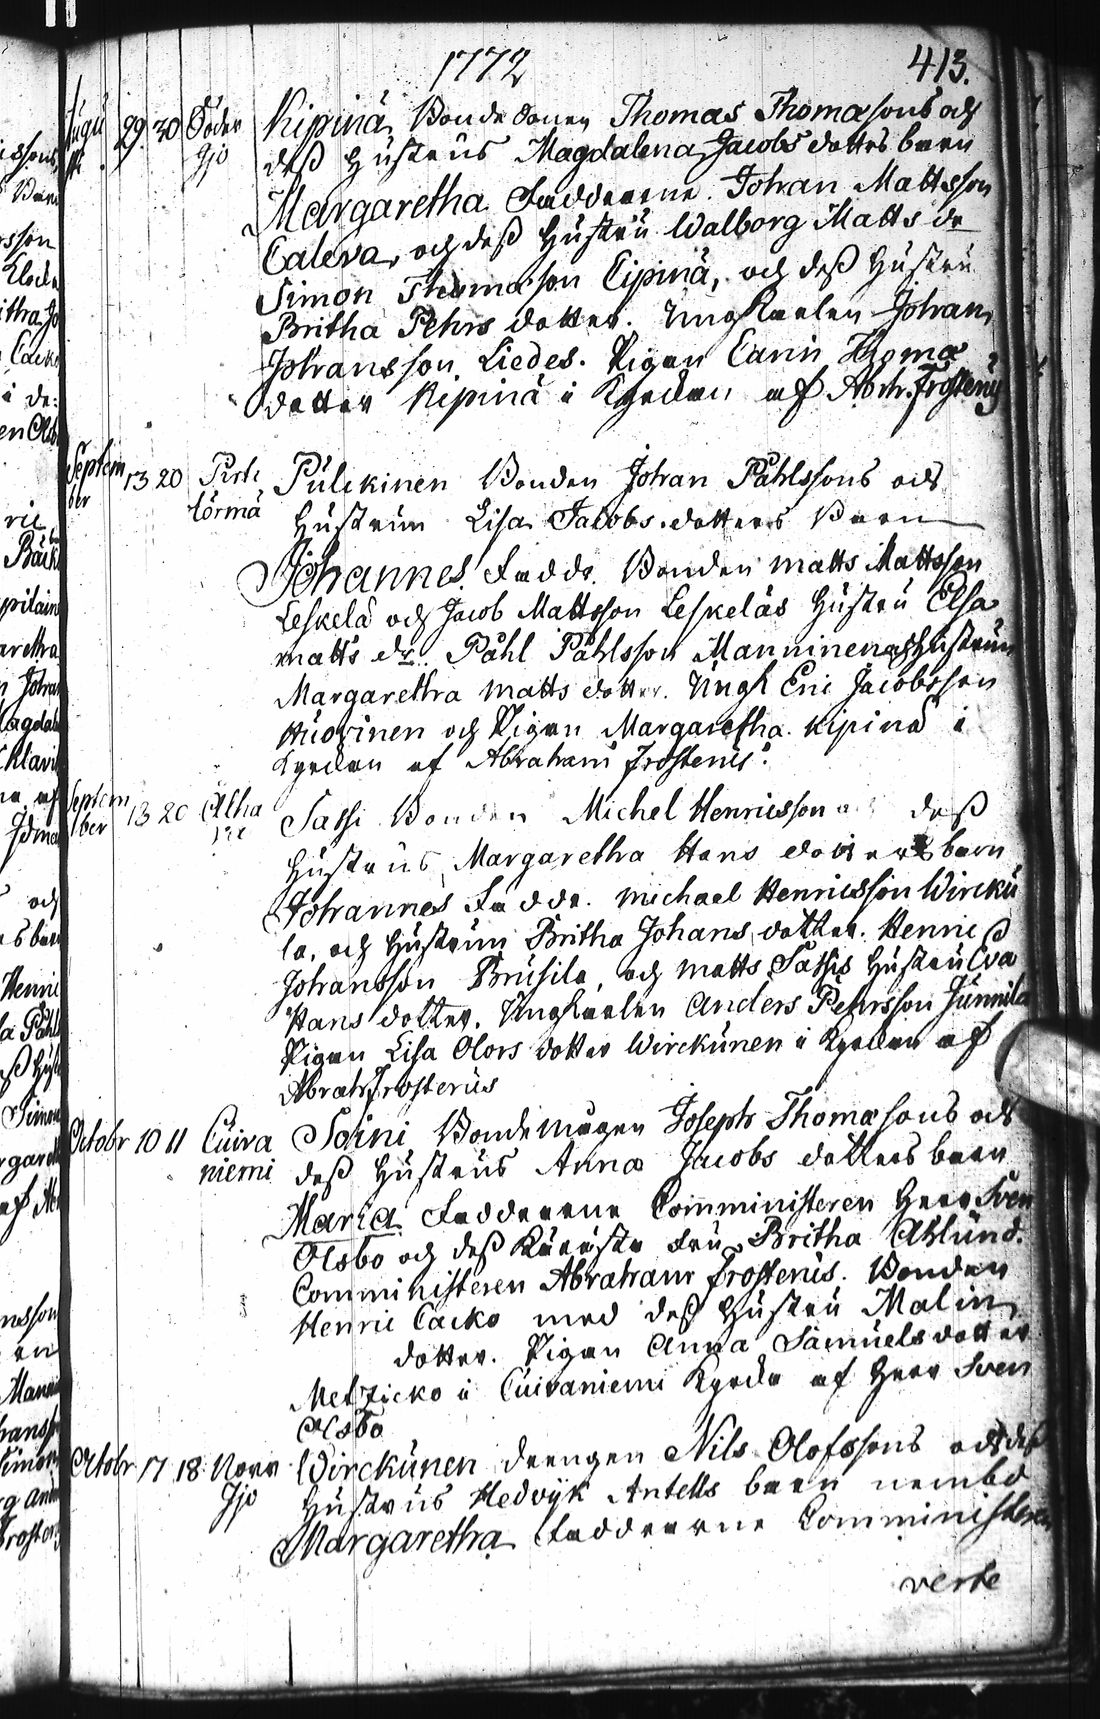 1772 413.
Augu 29. 30 Söder Kipinä, Bonde Sonen Thomas Thomæsons och
sti Ijo deß Hustrus Magdalena Jacobs dotters barn
Margaretha Faddrarne. Johan Mattsson
Caleva, och deß Hustru Walborg Matts dr
Simon Thomæson Cipinä, och deß Hustru
Britha Pehrs dotter. Ungkarlen Johan
Johansson Liedes. Pigan Carin Thomæ
dotter Kipinä i Kyrckan af Abrh. Frostenus
Septem 13 20 Pirti Pulckinen Bonden Johan Påhlssons och
ber törmä Hustrun Lisa Jacobs dotters Barn
Johannes. Faddr. Bonden Matts Mattsson
Leskelä och Jacob Mattsson Leskeläs Hustru Elsa
Matts dr. Påhl Påhlsson Manninen och Hustrun
Margaretha Matts dotter. Ungk Eric Jacobsson
Huovinen och Pigan Margaretha Kipinä i
Kyrckan af Abraham Frostenus.
Septem 13 20 Sassi Bonden Michel Henricsson deß
ber Hustrus Margaretha Hans dotters barn
Johannes Faddr. Michael Henricsson Wircku
la, och Hustrun Britha Johans dotter. Henric
Johansson Brusila, och Matts Sassis Hustru Eva
Hans dotter. Ungkarlen Anders Pehrsson Junnila
Pigan Lisa Olofs dotter Wirckunen i Kyrckan af
Abrah Frosterus
Octobr 10 11 Cuiva Soini Bonde mågen Joseph Thomæsons och
niemi deß Hustrus Anna Jacobs dotters barn
Maria. Faddrarne Comministeren Herr Sven
Olsbo och deß Käresta Fru Britha Ahlund.
Comministeren Abraham Frostenus. Bonden
Henric Cacko med deß Hustru Malin
dotter. Pigan Anna Samuels dotter
Metzicko i Cuivaniemi Kyrcka af Herr Sven
Olsbo
Octobr 17 18 Norr Wirckunen drengen Nils Olofssons och deß
Ijo Hustrus Hedvyk Antells barn nembd
Margaretha Faddrarne Comministeren
verte